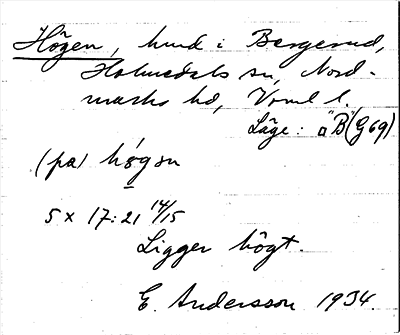 Högen, hmd i Bergerud,
Holmedals sn, Nord-
marks hd, Vrml l.
Läge: ¤ "B" (G69)
(pa) högen
5 x 17:21 14/15
Ligger högt.
E. Andersson 1934.